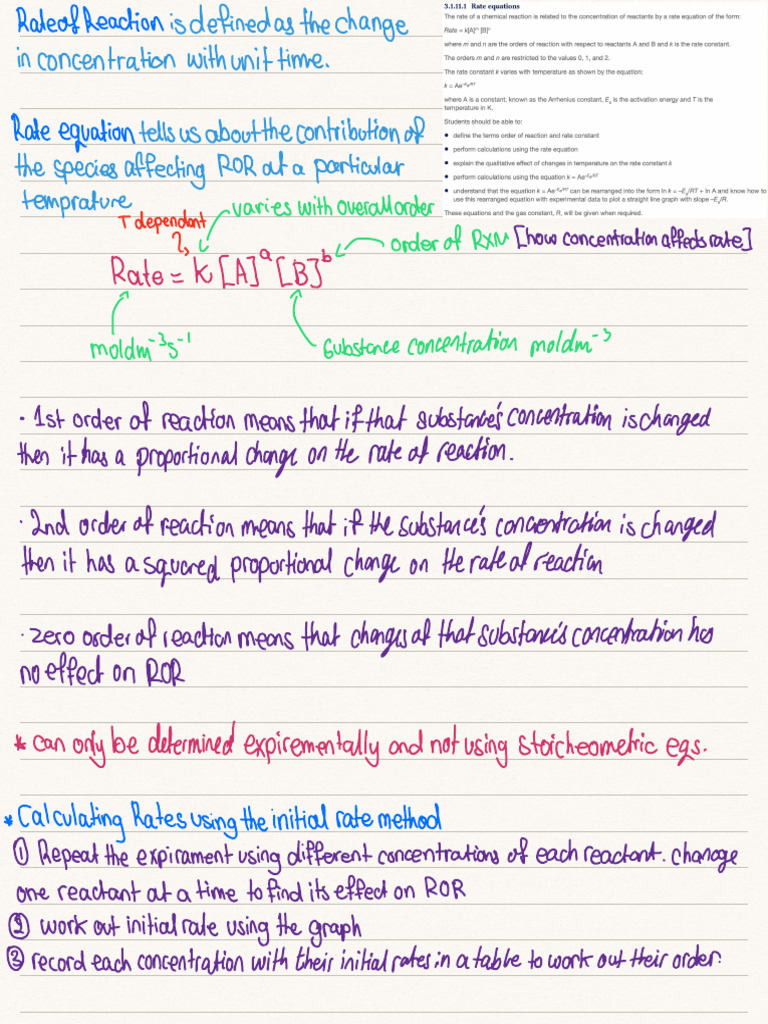 Rate of Reaction is defined as the change
in concentration with unit time.
3.1.11.1 Rate equations
The rate of a chemical reaction is related to the concentration of reactants by a rate equation of the form:
Rate = k[A]ᵐ [B]ⁿ
where m and n are the orders of reaction with respect to reactants A and B and k is the rate constant.
The orders m and n are restricted to the values 0, 1, and 2.
The rate constant k varies with temperature as shown by the equation:
k = Ae^-Ea/RT
where A is a constant, known as the Arrhenius constant, Ea is the activation energy and T is the
temperature in K.
Students should be able to:
• define the terms order of reaction and rate constant
• perform calculations using the rate equation
• explain the qualitative effect of changes in temperature on the rate constant k
• perform calculations using the equation k = Ae^-Ea/RT
• understand that the equation k = Ae^-Ea/RT can be rearranged into the form ln k = –Ea/RT + ln A and know how to
use this rearranged equation with experimental data to plot a straight line graph with slope –Ea/R.
These equations and the gas constant, R, will be given when required.
Rate equation tells us about the contribution of
the species affecting ROR at a particular
temprature
T dependant
varies with overall order
order of RXN [how concentration affects rate]
Rate = k [A]ᵃ [B]ᵇ
moldm⁻³s⁻¹
Substance concentration moldm⁻³
· 1st order of reaction means that if that substance's concentration is changed
then it has a proportional change on the rate of reaction.
· 2nd order of reaction means that if the substance's concentration is changed
then it has a squared proportional change on the rate of reaction
· zero order of reaction means that changes of that substance's concentration has
no effect on ROR
* can only be determined expirementally and not using stoicheometric eqs.
* Calculating Rates using the initial rate method
① Repeat the expirament using different concentrations of each reactant. change
one reactant at a time to find its effect on ROR
② work out initial rate using the graph
③ record each concentration with their initial rates in a table to work out their order.